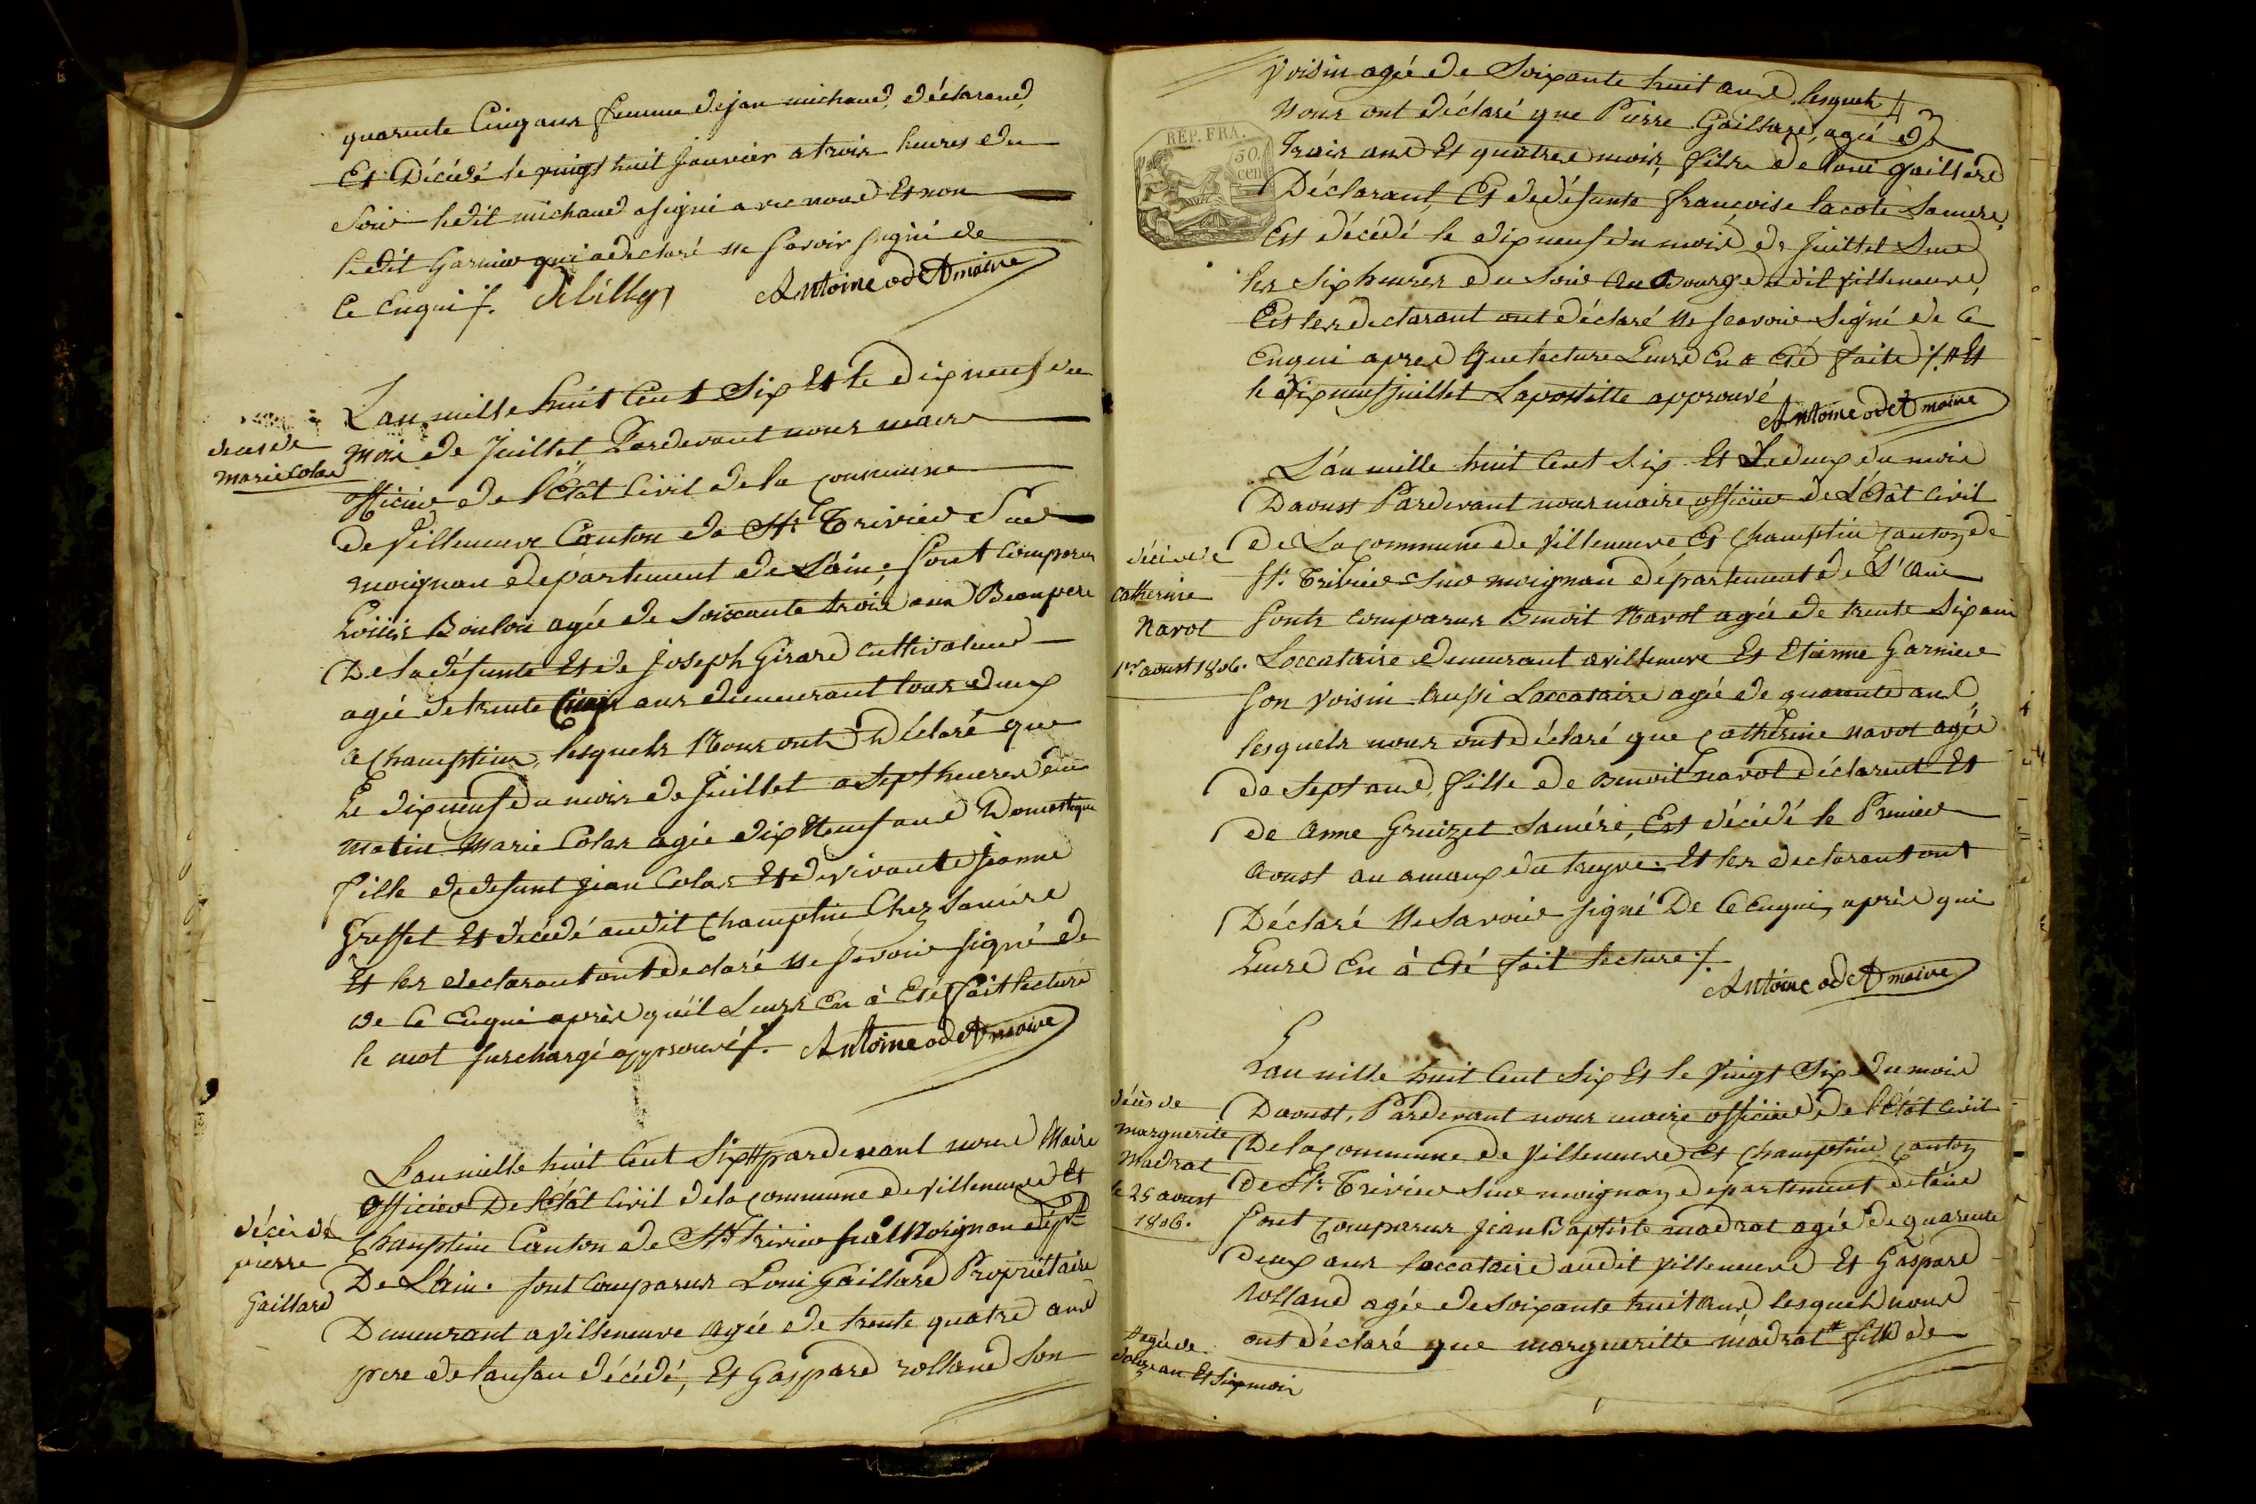 quarente Cinq ans femme de jan michaud déclarand
Et Décédé le vingt huit janvier a trois heures du
Soir ledit michaud a signé avec noud Et non
ledit Garnier qui a declaré ne savoir signé de
Ce Enqui ⁒. Antoine odet maire
décès de
marie Colas
Lan mille huit Cent Six Et le dix neuf du
mois de juillet Pardevant nous maire
officier de l'État Civil de la Commune
de Villeneuve Canton de St. Trivier Sur
moignan département de L'ain, Sont Comparus
Louis Boulon agée de soixante trois ans Beaupere
De la défunte Et de Joseph Girard cultivateur
agée de trente Cinq ans demeurant tous deux
a Champtein, lesquels Nous ont Déclaré que
Le dix neuf du mois de juillet a sept heures du
matin Marie Colas agée dix Neuf and Domestique
fille de defunt jean Colas Et de vivante jeanne
Greffet Et décédé audit Champtin Chez Samère
Et les declarant ont declaré ne savoir signé de
de Ce Enqui après qu'il Leurs En à Eté fait lecture
le mot surchargé approuvé ⁒. Antoine odet maire
décès de
pierre
Gaillard
Lan mille huit Cent Six # pardevant nous Maire
officier De l'État Civil de la Commune de Villeneuve Et
Champtein Canton de St. Trivier sur Moignan dépt.
De L'ain. sont Comparus Loui Gaillard Propriétaire
Demeurant a Villeneuve agée de trente quatre and
pere de lanfan décédé, Et Gaspard rolland Son
REP. FRA.
50.
cen.
Voisin agée de Soixante huit and lesquels
Nous ont déclaré que Pierre Gaillard, agée de
Trois and Et quatre mois, fils de Loui gaillard
Déclarant, Et de défunte francoise lacote Samere,
Est décédé le dix neuf du mois de juillet Sur
les Six heures du Soir au Bourg dudit Villeneuve,
Et les declarant ont déclaré Ne scavoir Signé de Ce
Enqui apres que lecture Leurs En a Eté faite ⁒. # Et
le dix neuf juillet Lapostille approuvé
Antoine odet maire
décès de
Catherine
Navot
1er aoust 1806.
L'an mille huit Cent Six Et Le deux du mois
Daoust Pardevant nous maire officier de L'État Civil
De La Commune de Villeneuve Et Champtin Canton de
St. Trivier Sur moignan département de L'Ain
Sont Comparus Benoit Navot agée de trente Six ans
Loccataire demeurant a villeneuve Et Etienne Garnier
son Voisin aussi Loccataire agée de quarente and,
lesquels nous ont déclaré que Catherine navot agée
de Sept and, fille de Benoit navot déclarent Et
de Anne Gruizet Samére, Est décédé le Premier
aoust au amaux du treyve. Et les declarant ont
Déclaré Ne Savoir signé De Ce Enqui, après qui
Leurs En à Eté fait lecture ⁒.
Antoine odet maire
décès de
marguerite
Madrat
le 25 aoust
1806.
Lan mille huit Cent Six Et le Vingt Six du mois
Daoust, Pardevant nous maire officier de l'État Civil
De la Commune de Villeneuve Et Champtin Canton
De St. Trivier Sur moignan département de l'ain
sont Comparus jean Baptiste madrat agée de quarente
deux ans loccataire audit Villeneuve Et Gaspard
rolland agée de soixante huit and lesquels nous
ont déclaré que marguerite madrat # fille de
# agée de
douze an Et Six mois